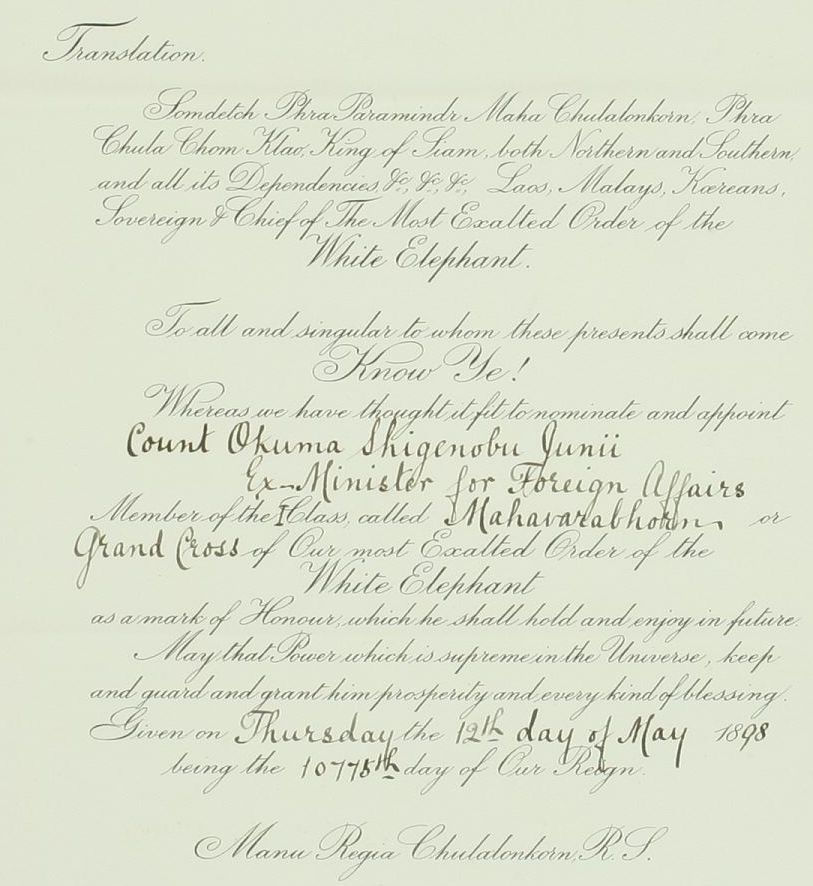 Translation.
Somdetch Phra Paramindr Maha Chulalonkorn, Phra
Chula Chom Klao, King of Siam, both Northern and Southern,
and all its Dependencies, &c, &c, &c, Laos, Malays, Kareans,
Sovereign & Chief of The Most Exalted Order of the
White Elephant.
To all and singular to whom these presents shall come
Know Ye!
Whereas we have thought it fit to nominate and appoint
Count Okuma Shigenobu Junii
Ex-Minister for Foreign Affairs
Member of the I Class, called Mahavarabhorn, or
Grand Cross of Our most Exalted Order of the
White Elephant
as a mark of Honour, which he shall hold and enjoy in future.
May that Power which is supreme in the Universe, keep
and guard and grant him prosperity and every kind of blessing.
Given on Thursday the 12th day of May 1898
being the 10775th day of Our Reign.
Manu Regia Chulalonkorn, R. S.